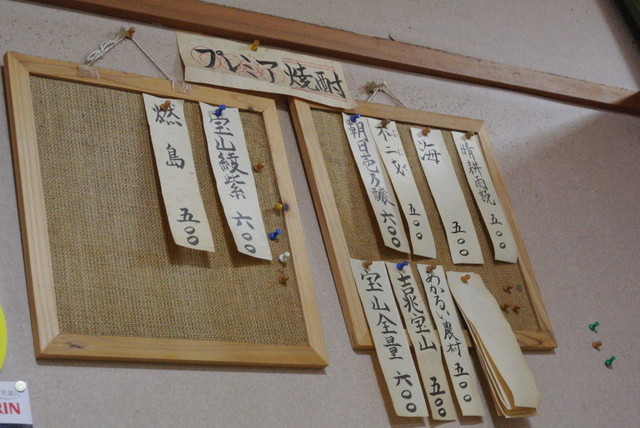 プレミア焼酎
燃島 五〇〇
宝山綾紫 六〇〇
朝日壱乃醸 六〇〇
不二才 五〇〇
海 五〇〇
晴耕雨読 五〇〇
宝山全量 六〇〇
吉兆宝山 五〇〇
あかるい農村 五〇〇
RIN